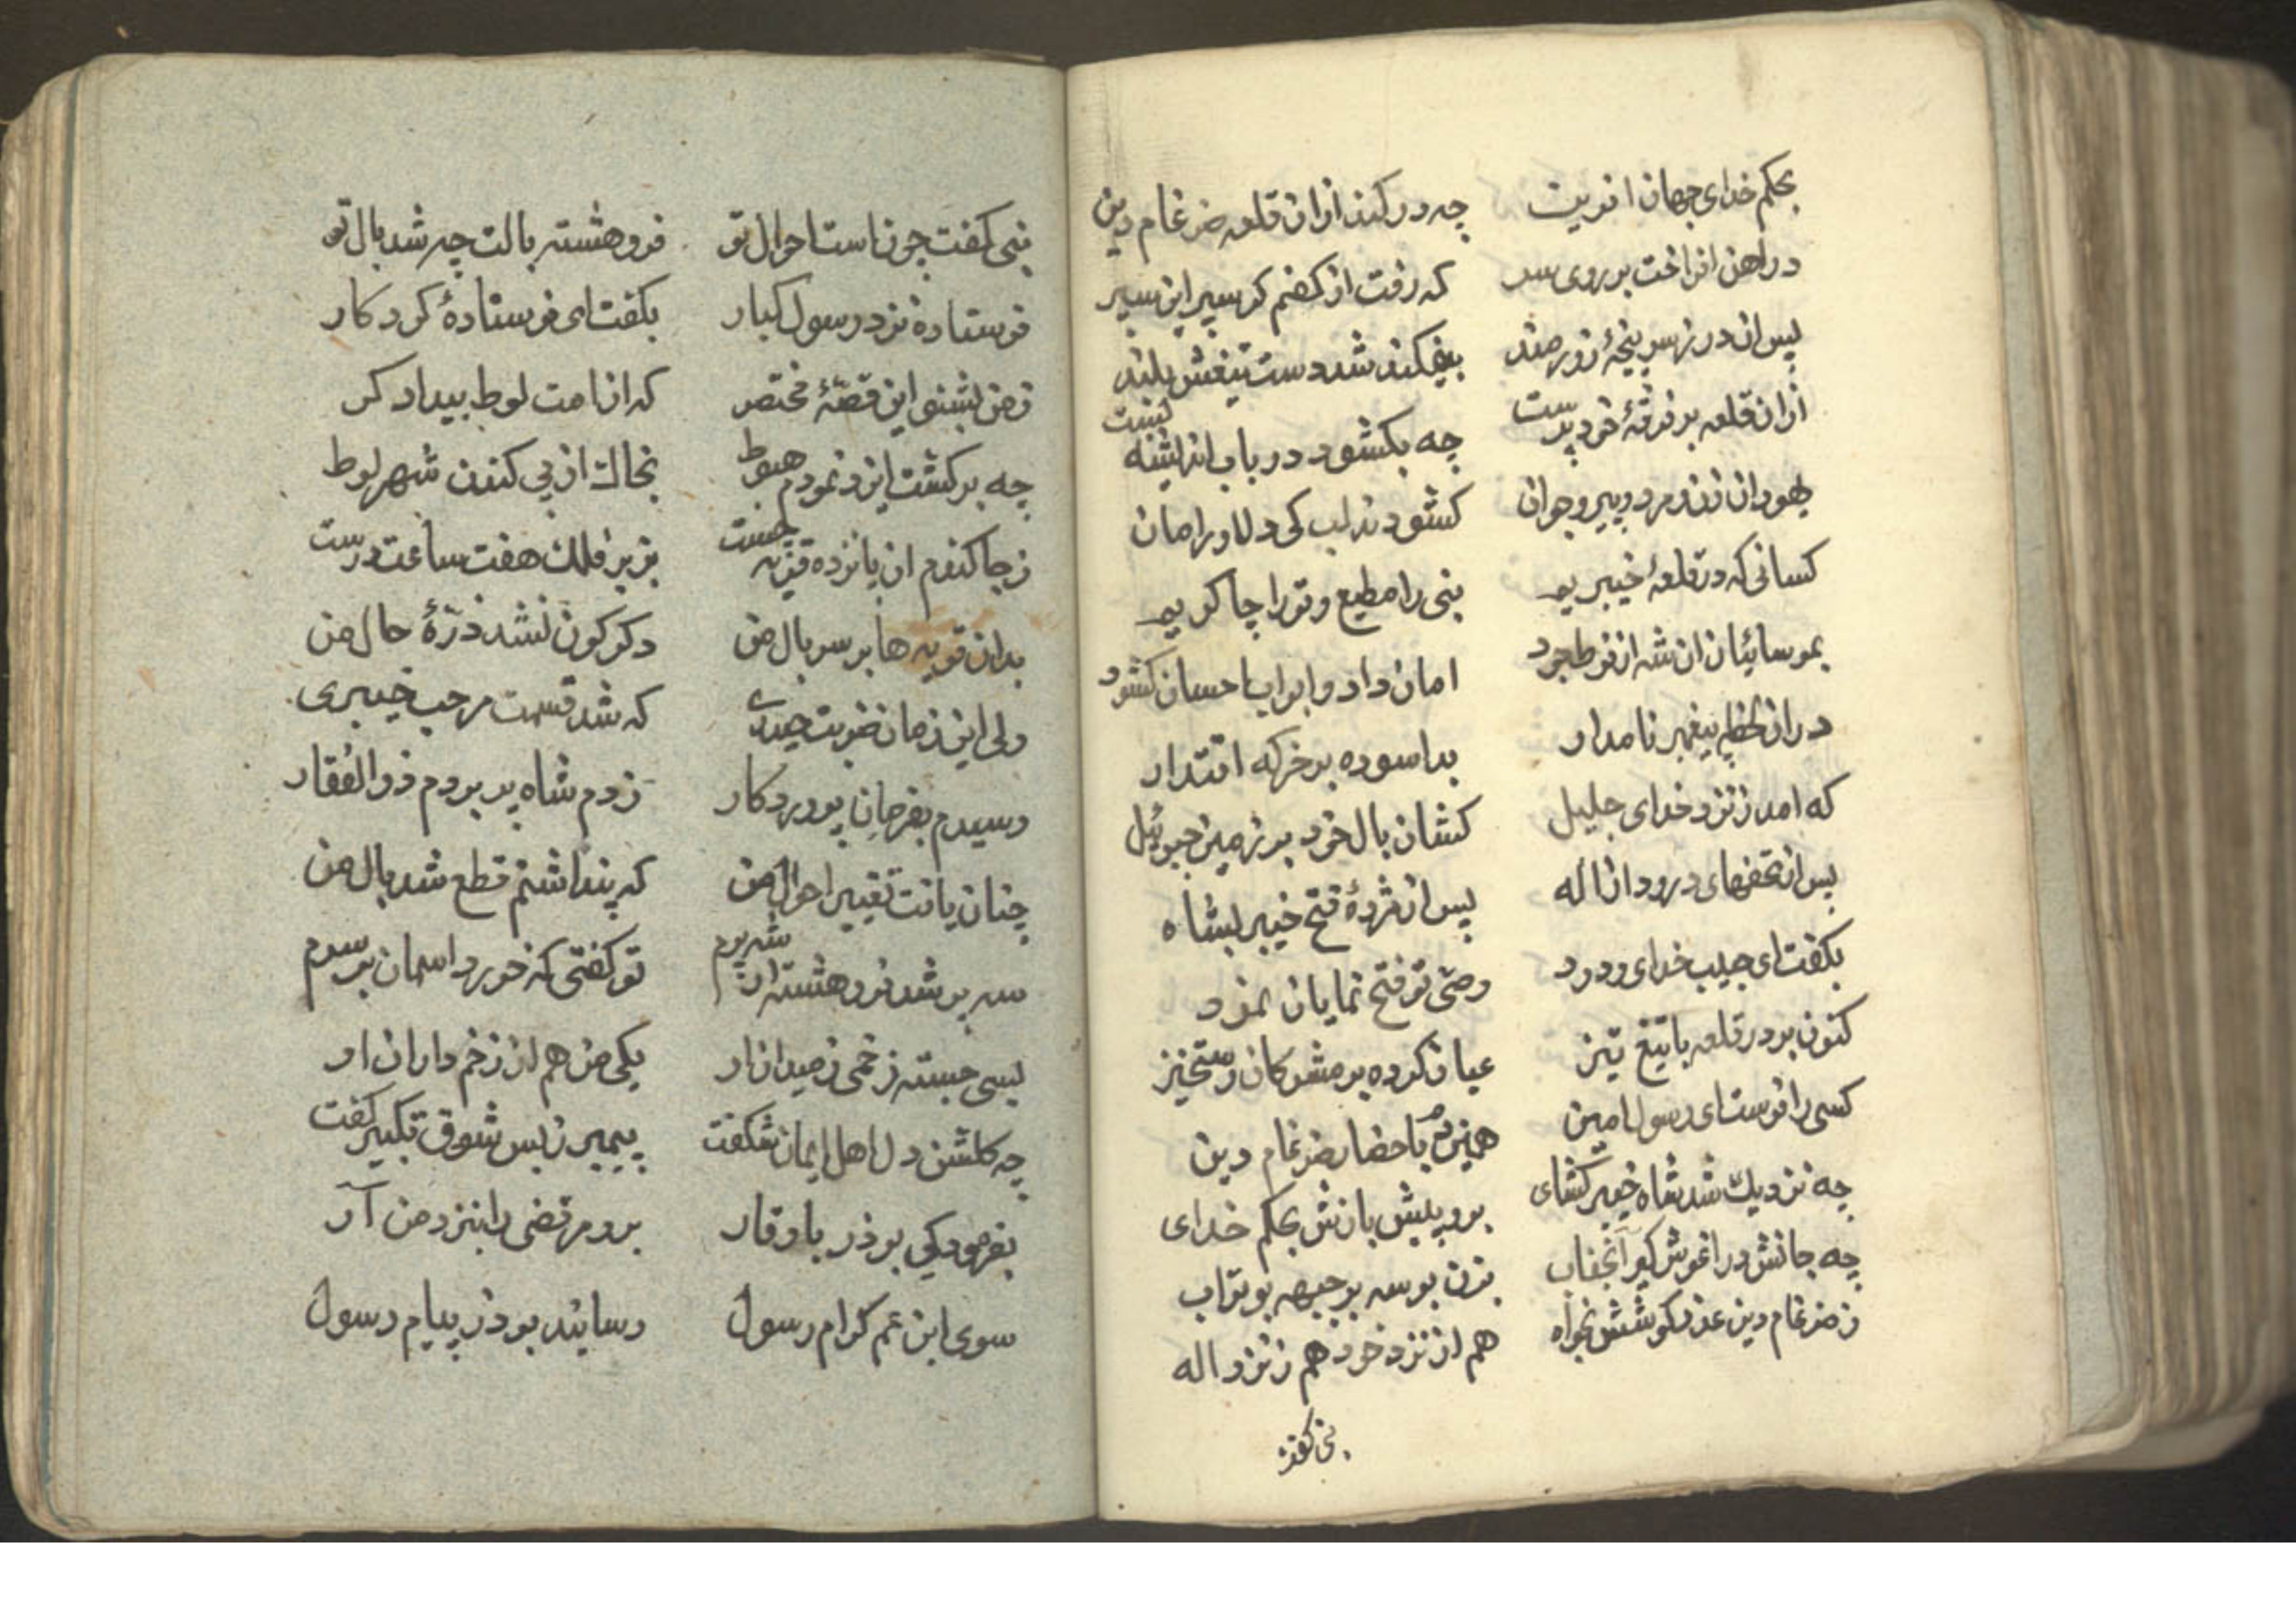 بحکم خدای جهان افرین چه در کند ازان قلعه ضرغام دین
در اهن افراخت بر روی سر که رفت از کفم کر سپر این سپر
پس ان در ز سر پنجهٔ زورمند بیفکند شد دست تیغش بلند
ازان قلعه بر فرقهٔ خود پرست چه بکشود در باب اندیشه ببست
یهودان زن و مرد و پیر و جوان کشودند لب کی دلاور امان
کسانی که در قلعهٔ خیبریم نبی را مطیع و تو را چاکریم
بموسائیان ان شه از فرط جود امان داد و ابواب احسان کشود
در ان لحظه پیغمبر نامدار بد اسوده بر خرکه اقتدار
که امد ز نزد خدای جلیل کشان بال خود بر زمین جبرئیل
پس از تحفهای درود از اله پس از مژدهٔ فتح خیبر بشاه
بکفت ای حبیب خدای ودود وصی تو فتح نمایان نمود
کنون بر در قلعه با تیغ تیز عیان کرده بر مشرکان رستخیز
کسی را فرست ای رسول امین همین دم باحضار ضرغام دین
چه نزدیک شد شاه خیبر کشای برو پیش بازش بحکم خدای
چه جانش در اغوش کیر آنجناب بزن بوسه بر جبهه بوتراب
ز ضرغام دین عذر کوشش بخواه هم از نزد خود هم ز نزد اله
نبی کفت
نبی کفت چون است احوال تو فروهشته بالت چه شد بال تو
فرستاده نزد رسول کبار بکفت ای فرستادهٔ کردکار
ز من بشنو این قصّهٔ مختصر که از امت لوط بیدادکر
چه برکشت ایزد نمودم هبوط بخاک از پی کندن شهر لوط
ز جا کندم ان پانزده قریه چست بزیر فلک هفت ساعت درست
بدان قریه ها بر سر بال من دکرکون نشد ذرّهٔ حال من
ولی این زمان ضربت حیدری که شد قسمت مرحب خیبری
رسیدم بفرمان پروردکار زدم شاه پر بر دم ذوالفقار
چنان یافت تغییر احوال من که پنداشتم قطع شد بال من
سه پر شد فروهشته از شهپرم تو کفتی که خورد اسمان بر سرم
بسی جسته زخمی ز میدان او یکی من هم از زخم داران او
چه کلشن دل اهل ایمان شکفت پیمبر ز بس شوق تکبیر کفت
بفرمود کی بوذر باوقار برو مرتضی را بنزد من آر
سوی ابن عم کرام رسول رسانید بوذر پیام رسول